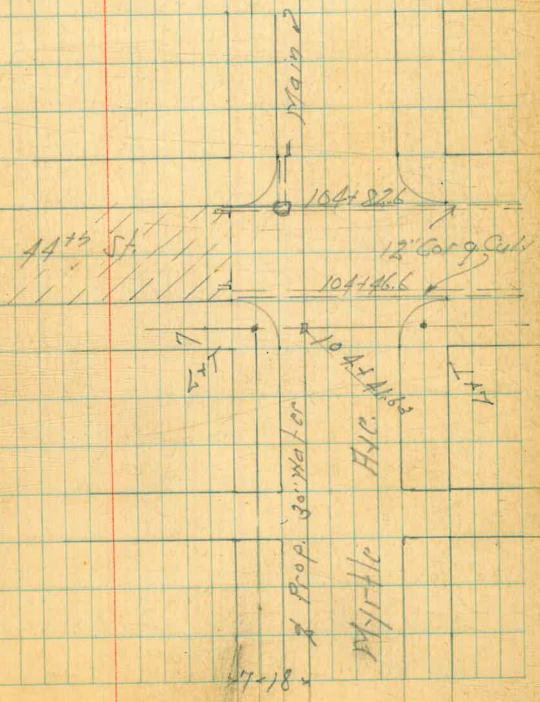 Main
104+82.6
44th St.
12" Corg. Cul.
104+46.6
L&T
104+41.63
L&T
Prop. 30" Water
Myrtle Ave.
7 - 18